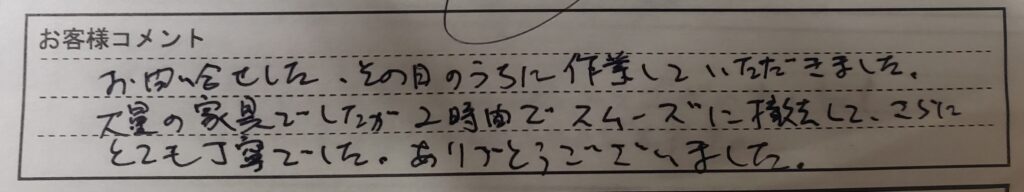 お客様コメント
お問い合せした、その日のうちに作業していただきました。
大量の家具でしたが2時間でスムーズに撤去して、さらに
とても丁寧でした。ありがとうございました。